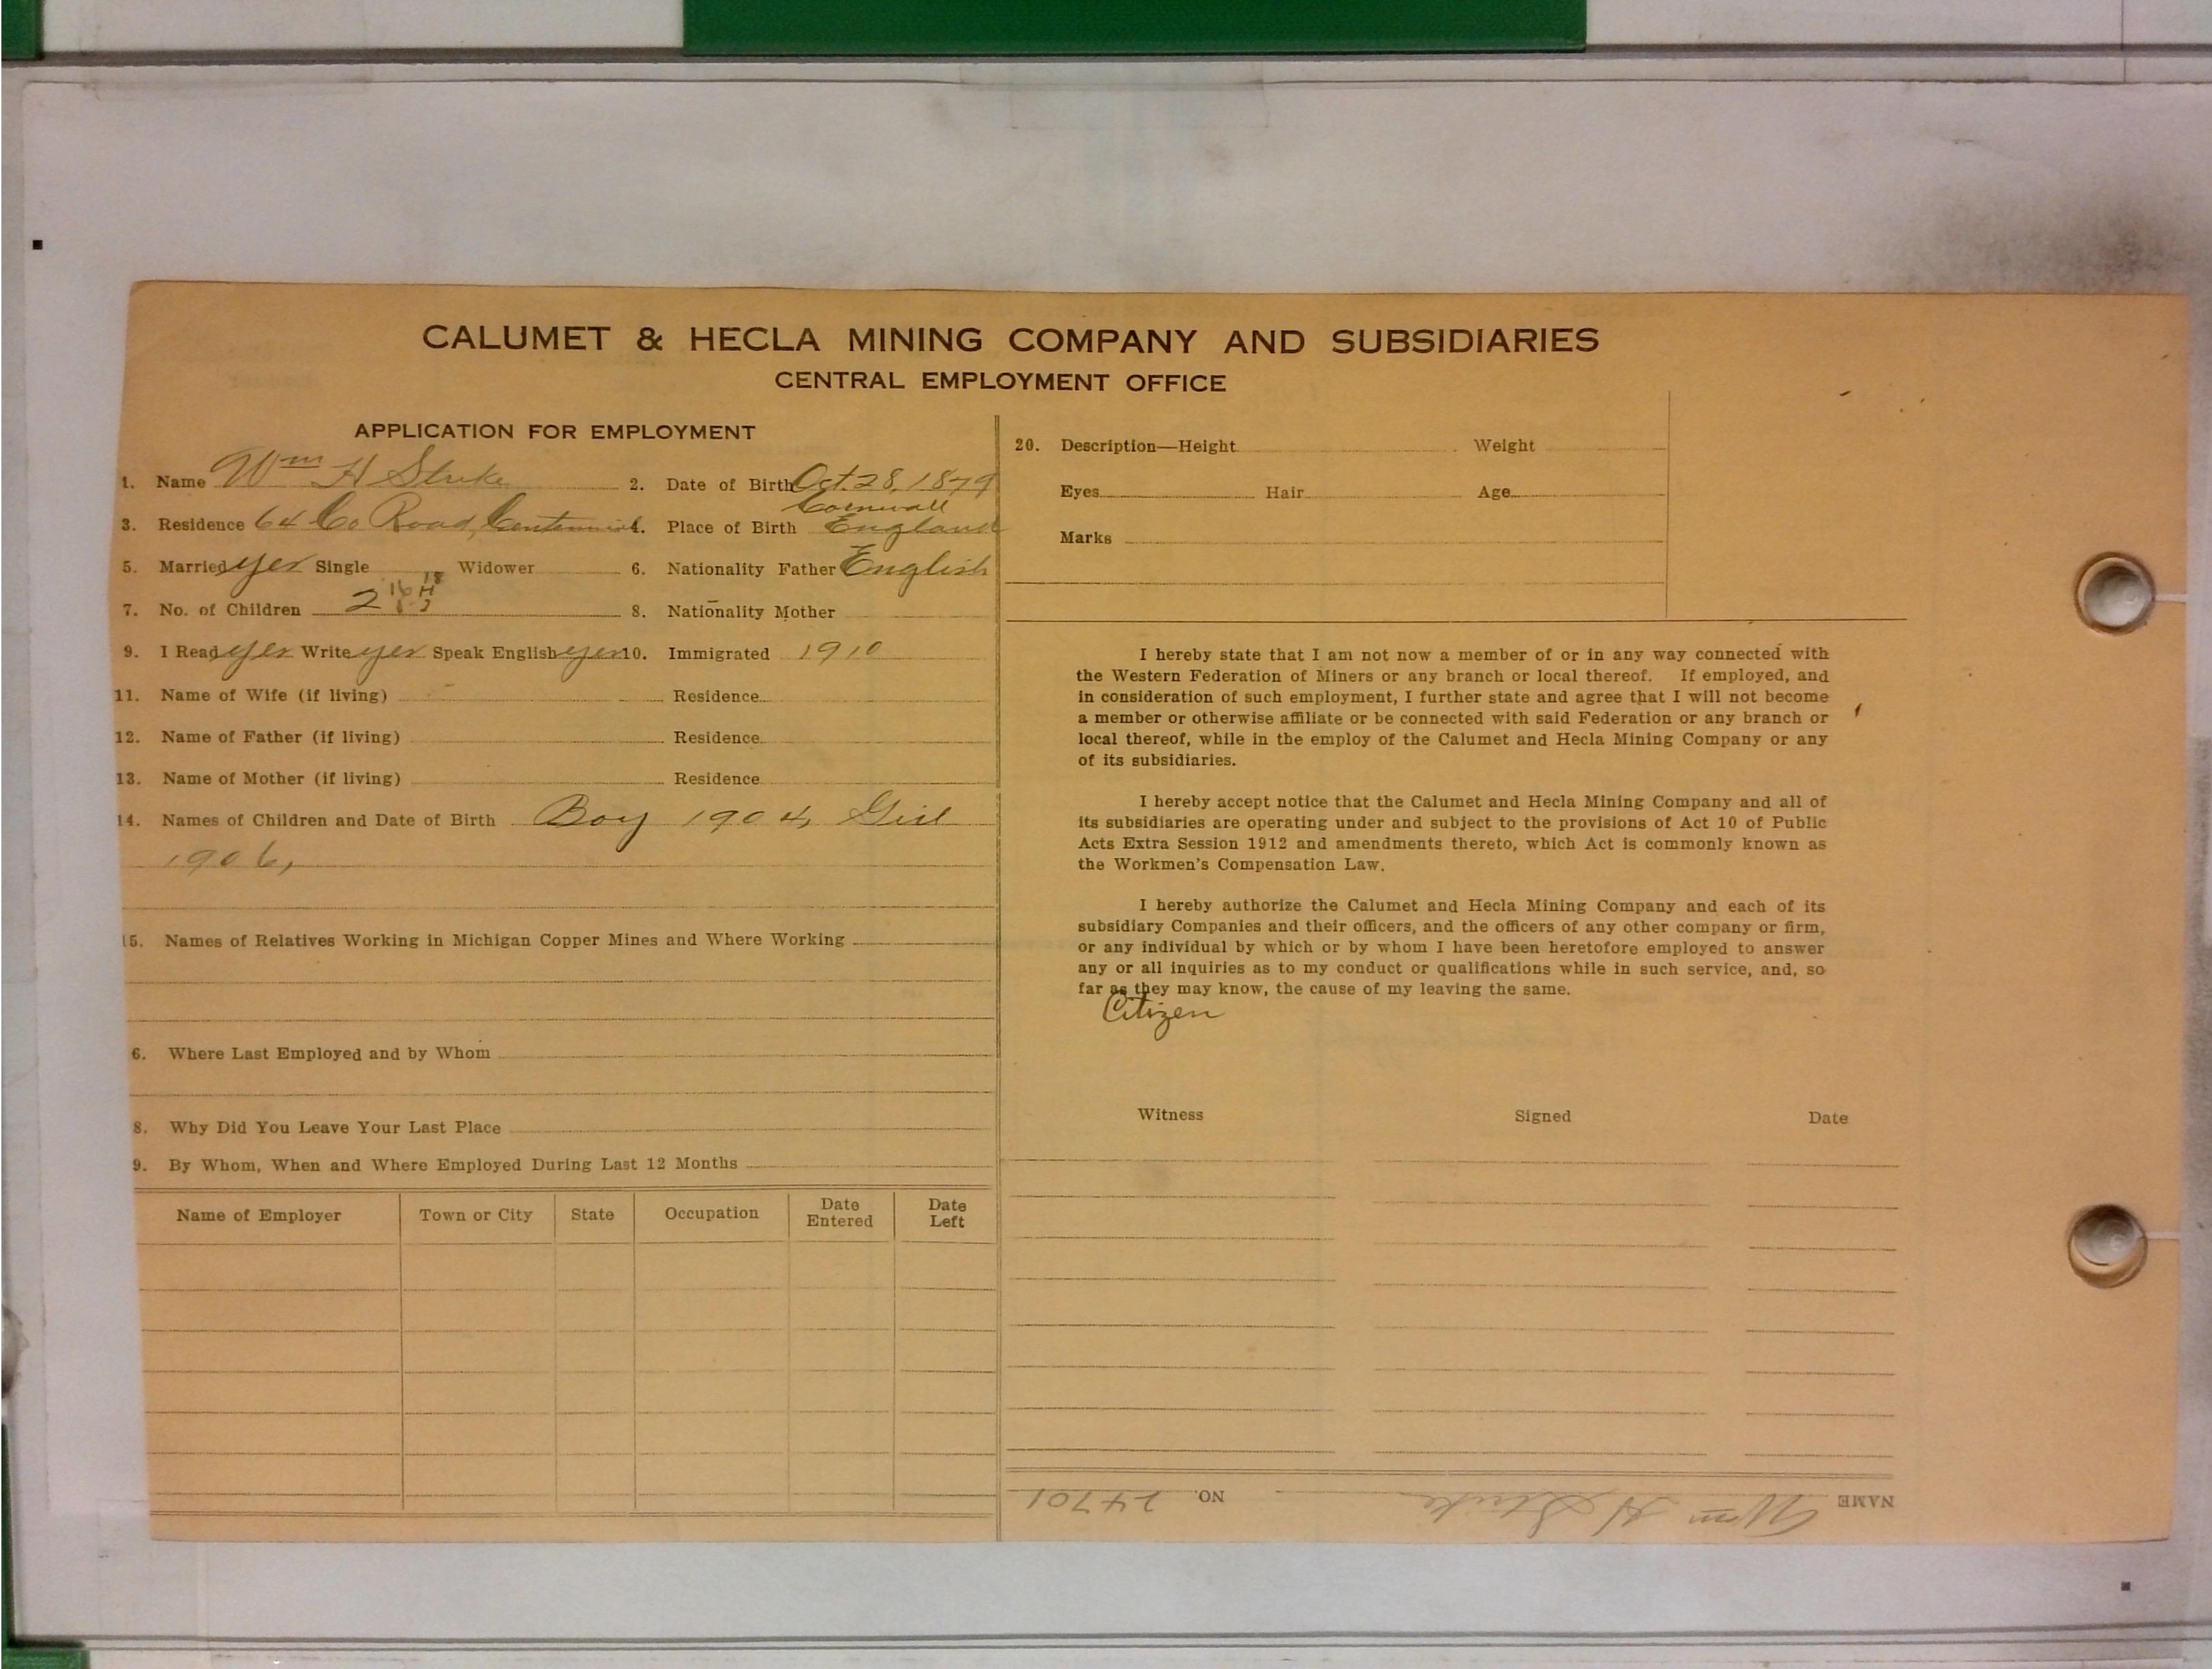 CALUMET & HECLA MINING COMPANY AND SUBSIDIARIES
CENTRAL EMPLOYMENT OFFICE
APPLICATION FOR EMPLOYMENT
1. Name Wm H Stuke 2. Date of Birth Oct. 28, 1879
3. Residence 64 Co Road, Centennial 4. Place of Birth Cornwall England
5. Married yes Single Widower 6. Nationality Father English
7. No. of Children 2 8. Nationality Mother
9. I Read yes Write yes Speak English yes 10. Immigrated 1910
11. Name of Wife (if living) Residence
12. Name of Father (if living) Residence
13. Name of Mother (if living) Residence
14. Names of Children and Date of Birth Boy 1904, Girl
1906,
15. Names of Relatives Working in Michigan Copper Mines and Where Working
6. Where Last Employed and by Whom
8. Why Did You Leave Your Last Place
9. By Whom, When and Where Employed During Last 12 Months
Name of Employer Town or City State Occupation Date Entered Date Left
20. Description—Height Weight
Eyes Hair Age
Marks
I hereby state that I am not now a member of or in any way connected with
the Western Federation of Miners or any branch or local thereof. If employed, and
in consideration of such employment, I further state and agree that I will not become
a member or otherwise affiliate or be connected with said Federation or any branch or
local thereof, while in the employ of the Calumet and Hecla Mining Company or any
of its subsidiaries.
I hereby accept notice that the Calumet and Hecla Mining Company and all of
its subsidiaries are operating under and subject to the provisions of Act 10 of Public
Acts Extra Session 1912 and amendments thereto, which Act is commonly known as
the Workmen's Compensation Law.
I hereby authorize the Calumet and Hecla Mining Company and each of its
subsidiary Companies and their officers, and the officers of any other company or firm,
or any individual by which or by whom I have been heretofore employed to answer
any or all inquiries as to my conduct or qualifications while in such service, and, so
far as they may know, the cause of my leaving the same.
Citizen
Witness Signed Date
NAME Wm H Stuke NO. 24701